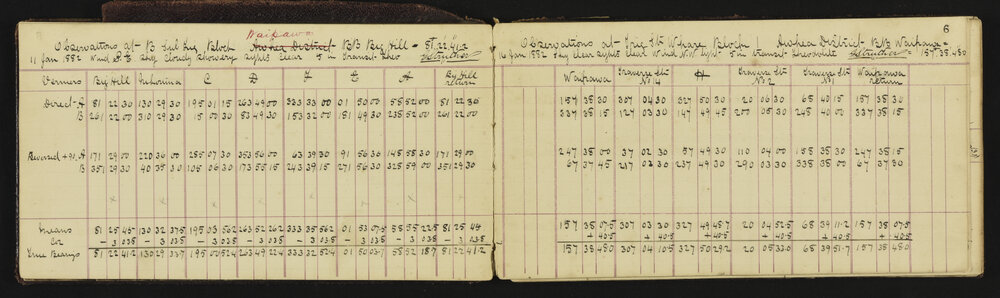 Waipawa
Observations at B Block District BB Big Hill = 81.22.41.2
11 Jan 1882 Wind Sky Cloudy Showery lights clear 5 in Transit Theo
Verniers Big Hill C D F E A Big Hill return
Direct - A 81 22 30 130 29 30 195 01 15 263 49 00 333 33 00 01 50 00 58 52 00 81 22 30
B 261 22 00 310 29 30 15 00 30 83 49 30 153 32 00 181 49 30 238 52 00 261 22 00
Reversed + 90 A 171 29 00 220 36 00 285 07 30 353 56 00 63 39 30 91 56 30 148 58 30 171 29 00
B 351 29 30 40 35 30 105 06 30 173 55 15 243 39 15 271 56 30 328 59 00 351 29 30
Means 81 25 45 130 32 37.5 195 03 56.2 263 52 26.2 333 35 56.2 01 53 07.5 58 55 22.5 81 25 45
Co - 3 03.8 - 3 03.8 - 3 03.8 - 3 03.8 - 3 03.8 - 3 03.8 - 3 03.8 - 3 03.8
True Bearings 81 22 41.2 130 29 33.7 195 00 52.4 263 49 22.4 333 32 52.4 01 50 03.7 58 52 18.7 81 22 41.2
6
Observations at Trig Stn Whare Block District BB Waipawa =
16 Jan 1882 Sky clear lights clear Wind N.W. light 5 in transit theodolite 157.38.48.0
Waipawa Traverse Stn No 14 H Traverse Stn No 2 Traverse Stn No 1 Waipawa return
157 38 30 307 04 30 327 50 30 20 06 30 68 40 15 157 38 30
337 38 15 127 03 30 147 49 45 200 05 30 248 40 00 337 38 15
247 38 00 37 02 30 57 49 30 110 04 00 158 38 30 247 38 15
67 37 45 217 03 30 237 49 30 290 03 30 338 38 00 67 37 30
157 38 07.5 307 03 30 327 49 48.7 20 04 52.5 68 39 11.2 157 38 07.5
+ 40.5 + 40.5 + 40.5 + 40.5 + 40.5 + 40.5
157 38 48.0 307 04 10.5 327 50 29.2 20 05 33.0 68 39 51.7 157 38 48.0